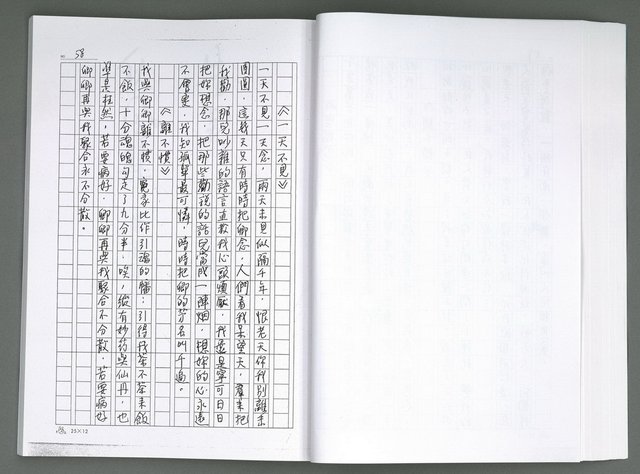 58
《一天不見》
一天不見一天念，兩天未見似隔千年，恨老天你我別離未
團圓，這幾天只有時時把卿念，人們看我呆望天，羣來把
我勸，那兒吵雜的語言並教我心頭煩厭，我還是寧可日日
把妳想念，把那些勸說的話兒當成一陣烟，想妳的心永遠
不會變，我知孤單最可憐，時時把卿的芳名叫千遍。
《離不慣》
我與卿卿離不慣，冤家比作引魂的旛；引得我茶不茶來飯
不飯，十分魂魄勾走了九分半，噯，縱有妙药與仙丹，也
單是枉然，若要病好，卿卿再與我聚合不分散，若要病好
卿卿再與我聚合永不分散。
25×12